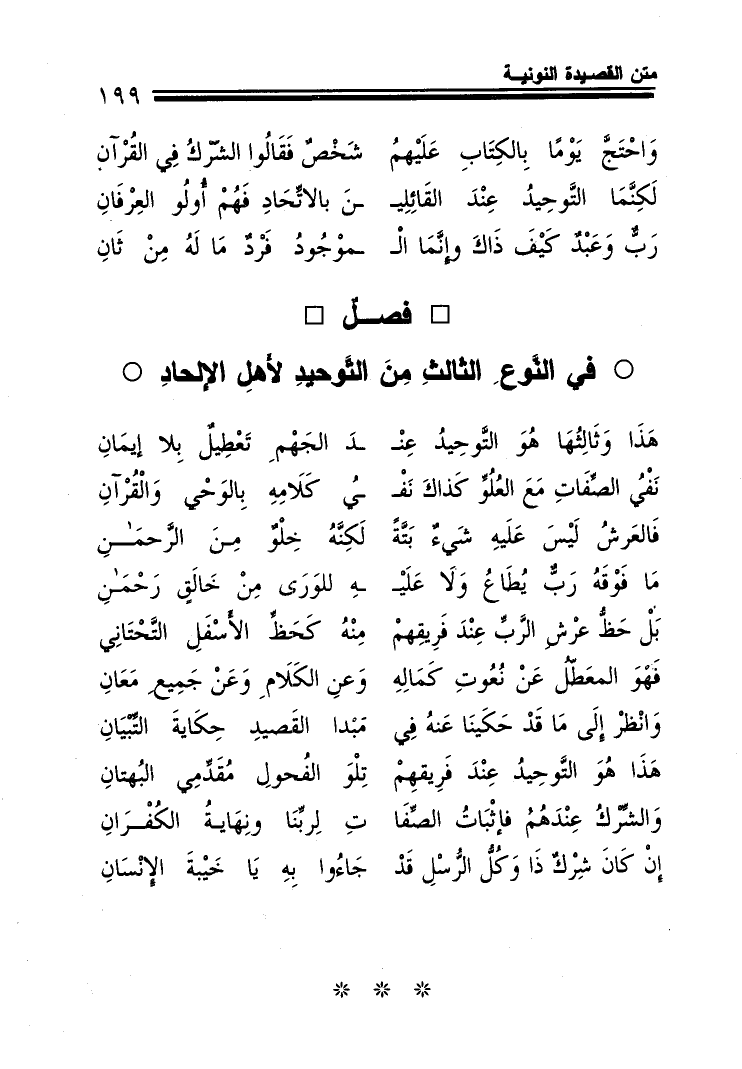 متن القصيدة النونية
١٩٩
وَاحْتَجَّ يَوْمًا بِالكِتَابِ عَلَيْهِمُ شَخْصٌ فَقَالُوا الشِّرْكُ فِي القُرْآنِ
لَكِنَّمَا التَّوحِيدُ عِنْدَ القَائِلِيـ ـنَ بالاتِّحَادِ فَهُمْ أُولُو العِرْفَانِ
رَبٌّ وَعَبْدٌ كَيْفَ ذَاكَ وإِنَّمَا الْـ ـموْجُودُ فَرْدٌ مَا لَهُ مِنْ ثَانِ
□ فصــلٌ □
○ في النَّوعِ الثالثِ مِنَ التَّوحيدِ لأهلِ الإلحادِ ○
هَذَا وَثَالِثُهَا هُوَ التَّوحِيدُ عِنْـ ـدَ الجَهْمِ تَعْطِيلٌ بِلا إيمَانِ
نَفْيُ الصِّفَاتِ مَعَ العُلُوِّ كَذاكَ نَفْـ ـيُ كَلَامِهِ بِالوَحْيِ وَالْقُرْآنِ
فَالعَرشُ لَيْسَ عَلَيهِ شَيءٌ بَتَّةً لَكِنَّهُ خِلْوٌ مِـنَ الرَّحمَـٰـنِ
مَا فَوْقَهُ رَبٌّ يُطَاعُ وَلَا عَلَيْـ ـهِ للوَرَى مِنْ خَالِقٍ رَحْمَـٰنِ
بَلْ حَظُّ عرْشِ الرَّبِّ عِنْدَ فَرِيقِهِمْ مِنْهُ كَحَظِّ الأَسْفَلِ التَّحْتَانِي
فَهْوَ المعَطَّلُ عَنْ نُعُوتِ كَمَالِهِ وَعنِ الكَلَامِ وَعَنْ جَمِيعِ مَعَانِ
وَانْظُرْ إِلَى مَا قَدْ حَكَينَا عَنهُ فِي مَبْدا القَصيدِ حِكَايةَ التِّبْيَانِ
هَذَا هُوَ التَّوحِيدُ عِنْدَ فَرِيقِهِمْ تِلْوَ الفُحولِ مُقَدِّمِي البُهتانِ
وَالشِّرْكُ عِنْدَهُمُ فإثْبَاتُ الصِّفَا تِ لِربِّنَا ونِهَايـةُ الكُفْـرَانِ
إِنْ كَانَ شِرْكٌ ذَا وَكُلُّ الرُّسْلِ قَدْ جَاءُوا بِهِ يَا خَيْبَةَ الإِنْسَانِ
* * *